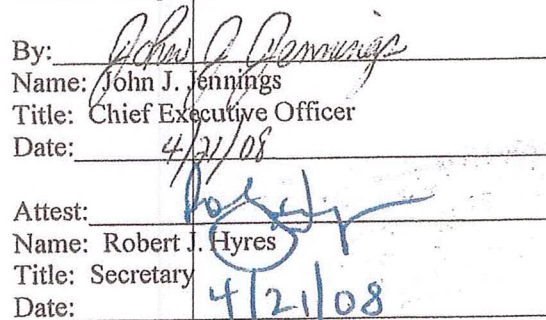 By: John J Jennings
Name: John J. Jennings
Title: Chief Executive Officer
Date: 4/21/08
Attest:
Name: Robert J. Hyres
Title: Secretary
Date: 4/21/08